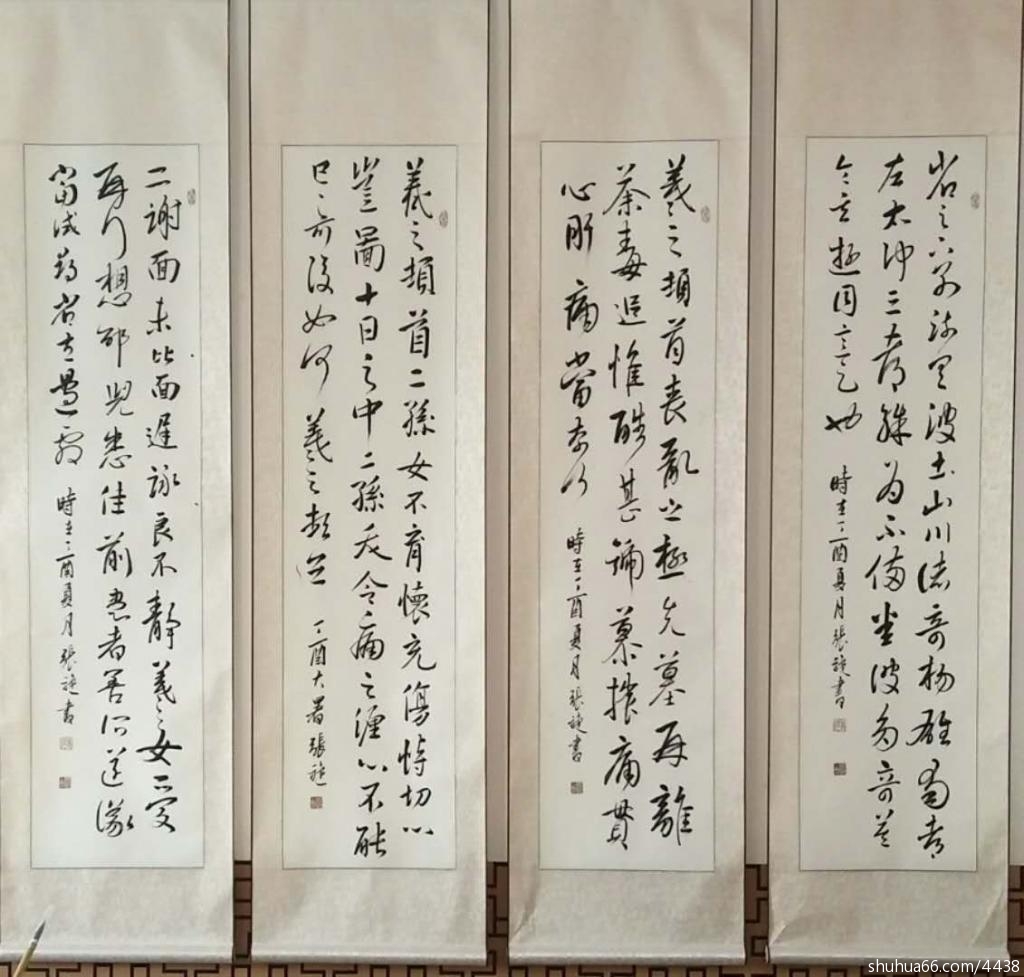 省足下別疏具彼土山川諸奇楊雄蜀都
左太沖三都殊為不備彼多奇益
令其遊目意足也
時在丁酉夏月張旋書
羲之頓首喪亂之極先墓再離
荼毒追惟酷甚號慕摧痛貫
心肝痛當奈何
時在丁酉夏月張旋書
羲之頓首二孫女不育懷充傷悼切心
豈圖十日之中二孫夭命痛之纏心不能
已已奈復如何 羲之頓首
丁酉大暑張旋
二謝面未比面遲詠良不靜羲之女愛
再拜想邰兒悉佳前患者善所送議
當試尋省左邊劇
時在丁酉夏月張旋書
shuhua66.com/4438